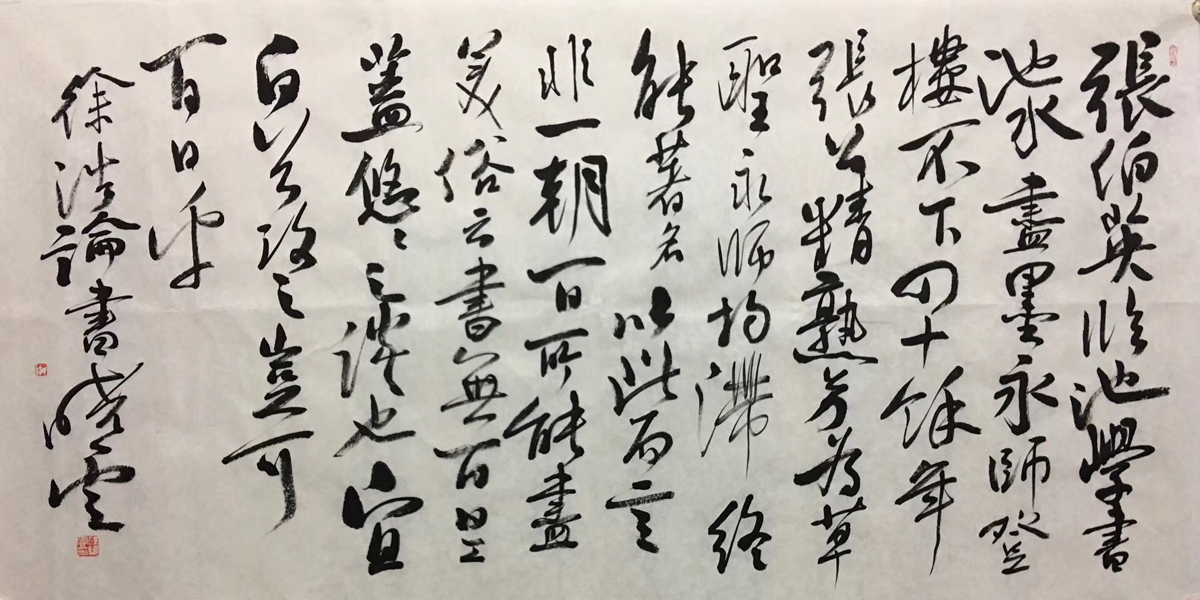 張伯英臨池學書
池水盡墨永師登
樓不下四十餘年
張公精熟号為草
聖永師拘滯終
能著名以此而言
非一朝一日所能盡
美俗云書無百日工
蓋悠悠之談也宜
白首攻之豈可
百日乎
徐浩論書曉雲